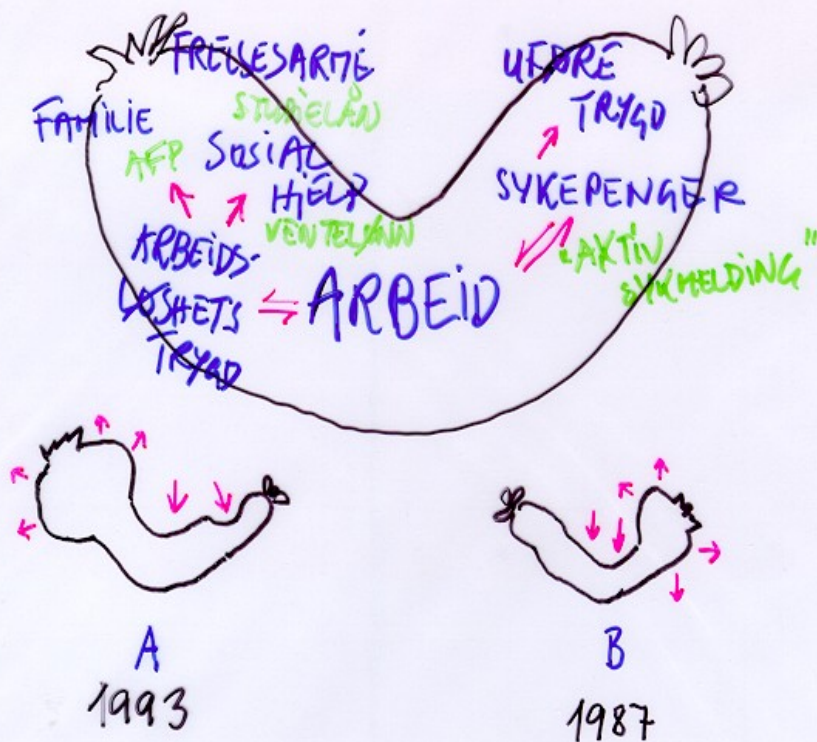 FRELSESARMÉ
FAMILIE
STUDIELÅN
AFP
SOSIAL
HJELP
VENTELØNN
ARBEIDS-
LØSHETS
TRYGD
ARBEID
UFØRE
TRYGD
SYKEPENGER
"AKTIV
SYKMELDING"
A
1993
B
1987